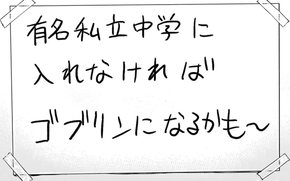 有名私立中学に
入れなければ
ゴブリンになるかも〜